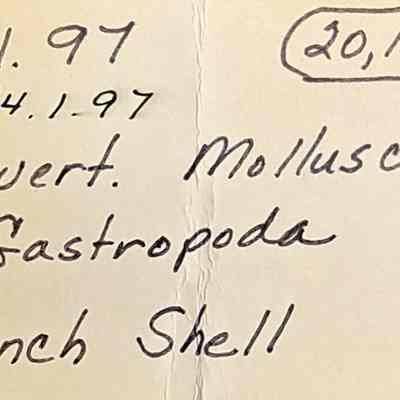 1.97 20,1
4.1-97
vert. Mollusc
Gastropoda
nch Shell